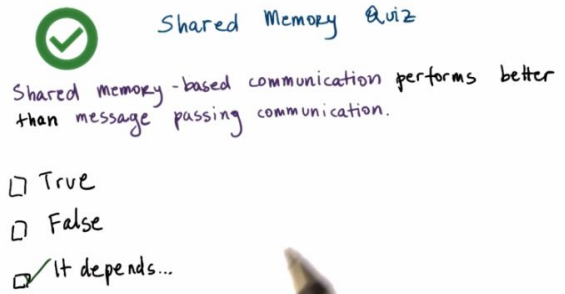 Shared Memory Quiz
Shared memory-based communication performs better
than message passing communication.
True
False
It depends...